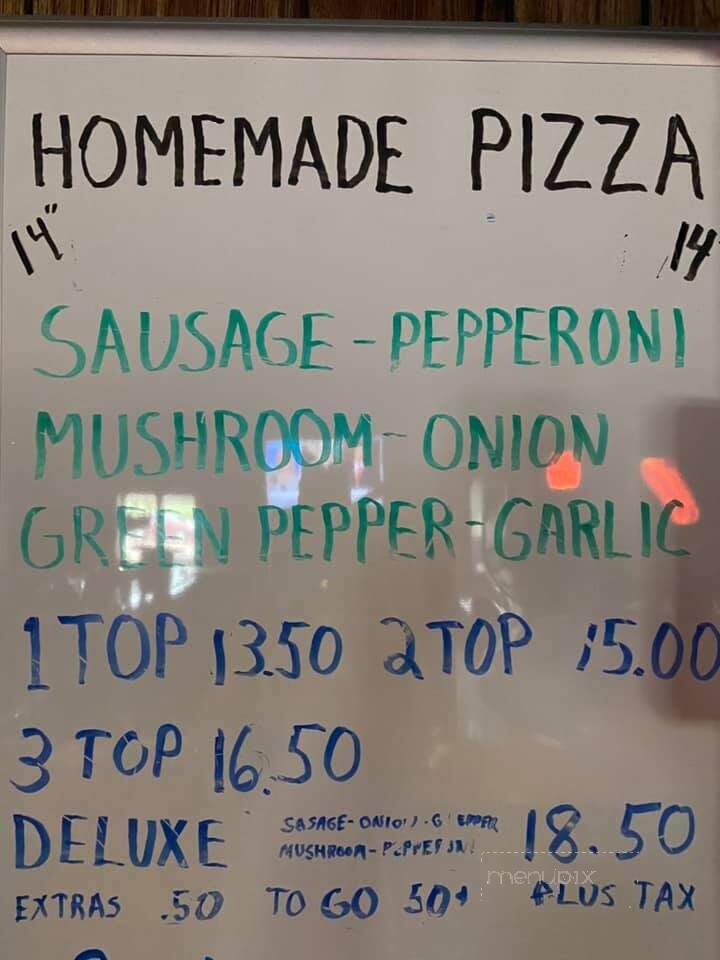 HOMEMADE PIZZA
14" 14
SAUSAGE - PEPPERONI
MUSHROOM - ONION
GREEN PEPPER - GARLIC
1 TOP 13.50 2 TOP 15.00
3 TOP 16.50
DELUXE SASAGE - ONION - G PEPPER 18.50
MUSHROOM - PEPPERONI
menupix
EXTRAS .50 TO GO 50¢ PLUS TAX